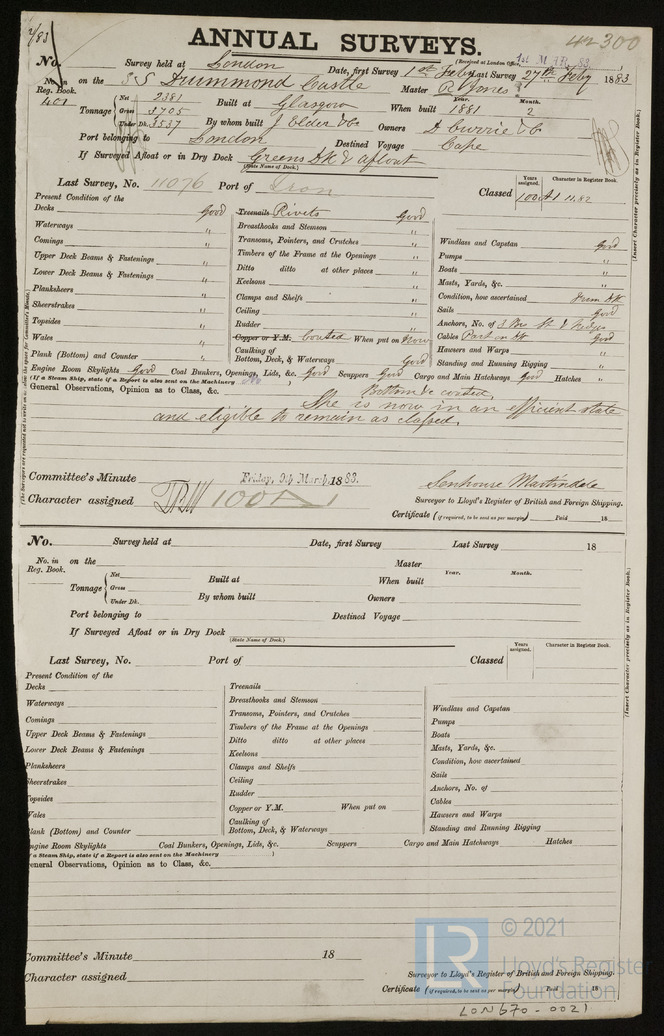 2/83
ANNUAL SURVEYS.
42300
No. Survey held at London Date, first Survey 1st Feby Last Survey 27th Feby 1883
(Received at London Office, 1st MAR 83)
No. in Reg. Book. 401 on the S S Drummond Castle Master R Jones
Tonnage Net 2381 Gross 3705 Under Dk. 3537 Built at Glasgow When built Year. 1881 Month. 2
By whom built J Elder & Co Owners D Currie & Co
Port belonging to London Destined Voyage Cape
If Surveyed Afloat or in Dry Dock Greens Dk & afloat
(State Name of Dock.)
Last Survey, No. 11076 Port of Lron Classed Years assigned. 100A1 Character in Register Book. 11.82
(Insert Character precisely as in Register Book.)
Present Condition of the
Decks Good
Waterways "
Comings "
Upper Deck Beams & Fastenings "
Lower Deck Beams & Fastenings "
Planksheers "
Sheerstrakes "
Topsides "
Wales "
Plank (Bottom) and Counter "
Treenails Rivets Good
Breasthooks and Stemson "
Transoms, Pointers, and Crutches "
Timbers of the Frame at the Openings "
Ditto ditto at other places "
Keelsons "
Clamps and Shelfs "
Ceiling "
Rudder "
Copper or Y.M. Coated When put on Now
Caulking of Bottom, Deck, & Waterways Good
Windlass and Capstan Good
Pumps "
Boats "
Masts, Yards, &c. "
Condition, how ascertained from Dk
Sails Good
Anchors, No. of 3 Br St & Kedges
Cables Part on Dk Good
Hawsers and Warps "
Standing and Running Rigging "
Engine Room Skylights Good Coal Bunkers, Openings, Lids, &c. Good Scuppers Good Cargo and Main Hatchways Good Hatches "
(If a Steam Ship, state if a Report is also sent on the Machinery No )
General Observations, Opinion as to Class, &c. Bottom coated,
She is now in an efficient state
and eligible to remain as classed.
Committee's Minute Friday, 9th March, 1883.
Character assigned 100A1
Senhouse Martindale
Surveyor to Lloyd's Register of British and Foreign Shipping.
Certificate (if required, to be sent as per margin) Paid 18
No. Survey held at Date, first Survey Last Survey 18
No. in Reg. Book. on the Master
Tonnage Net Gross Under Dk. Built at When built Year. Month.
By whom built Owners
Port belonging to Destined Voyage
If Surveyed Afloat or in Dry Dock
(State Name of Dock.)
Last Survey, No. Port of Classed Years assigned. Character in Register Book.
(Insert Character precisely as in Register Book.)
Present Condition of the
Decks
Waterways
Comings
Upper Deck Beams & Fastenings
Lower Deck Beams & Fastenings
Planksheers
Sheerstrakes
Topsides
Wales
Plank (Bottom) and Counter
Treenails
Breasthooks and Stemson
Transoms, Pointers, and Crutches
Timbers of the Frame at the Openings
Ditto ditto at other places
Keelsons
Clamps and Shelfs
Ceiling
Rudder
Copper or Y.M. When put on
Caulking of Bottom, Deck, & Waterways
Windlass and Capstan
Pumps
Boats
Masts, Yards, &c.
Condition, how ascertained
Sails
Anchors, No. of
Cables
Hawsers and Warps
Standing and Running Rigging
Engine Room Skylights Coal Bunkers, Openings, Lids, &c. Scuppers Cargo and Main Hatchways Hatches
(If a Steam Ship, state if a Report is also sent on the Machinery )
General Observations, Opinion as to Class, &c.
Committee's Minute 18
Character assigned
Surveyor to Lloyd's Register of British and Foreign Shipping.
Certificate (if required, to be sent as per margin) Paid 18
LR © 2021
Lloyd's Register
Foundation
LON670-0021